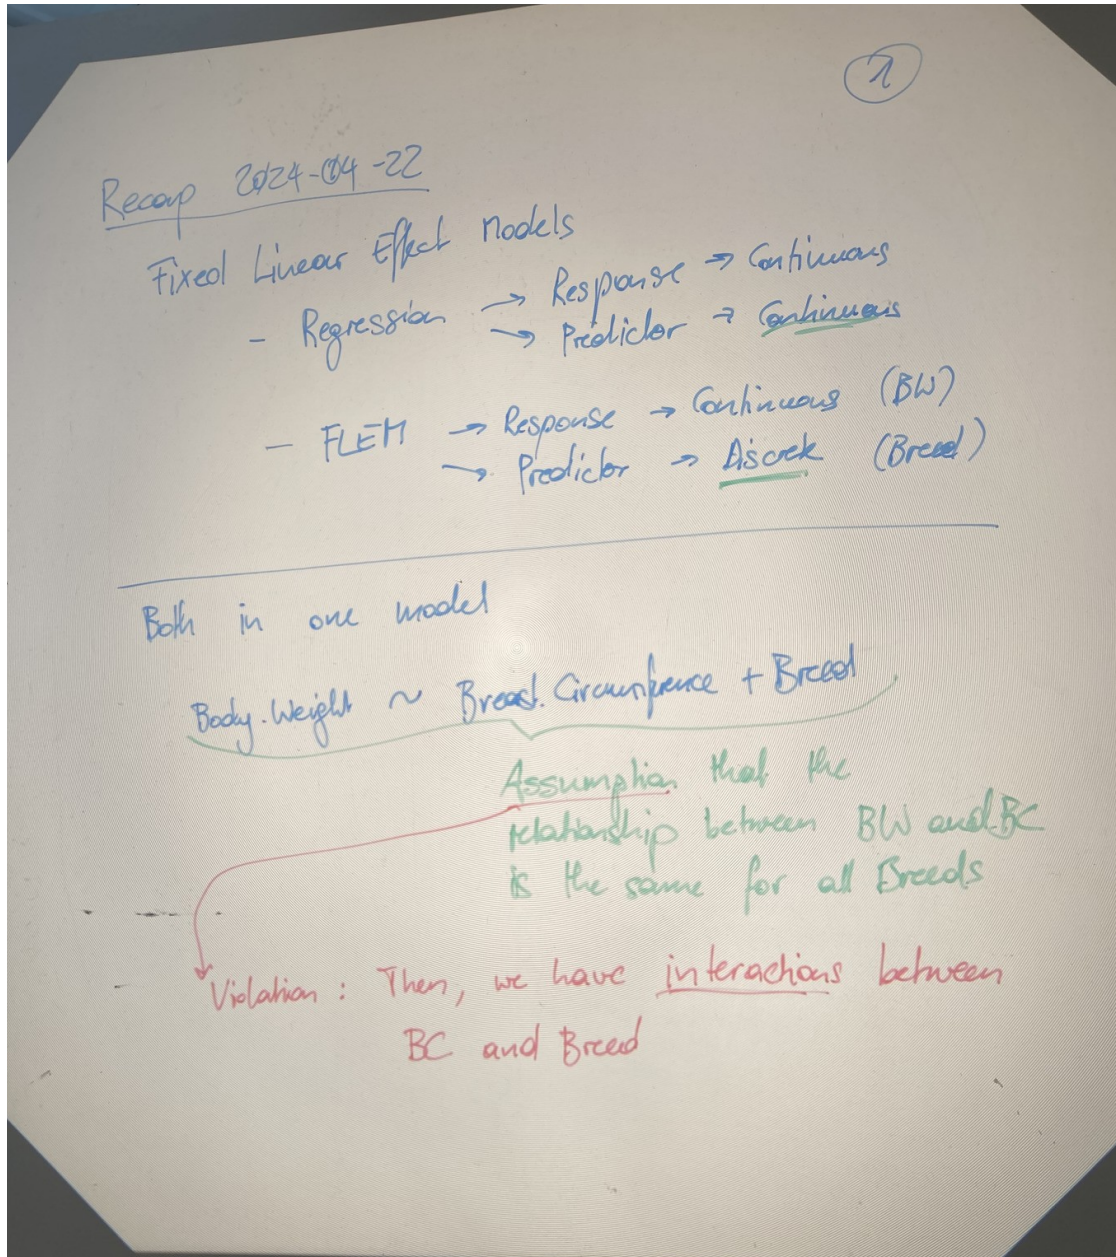 1
Recap 2024-04-22
Fixed Linear Effect Models
- Regression → Response → Continuous
→ Predictor → Continuous
- FLEM → Response → Continuous (BW)
→ Predictor → Discrete (Breed)
Both in one model
Body.Weight ~ Breast.Circumference + Breed
Assumption that the
relationship between BW and BC
is the same for all Breeds
Violation: Then, we have interactions between
BC and Breed